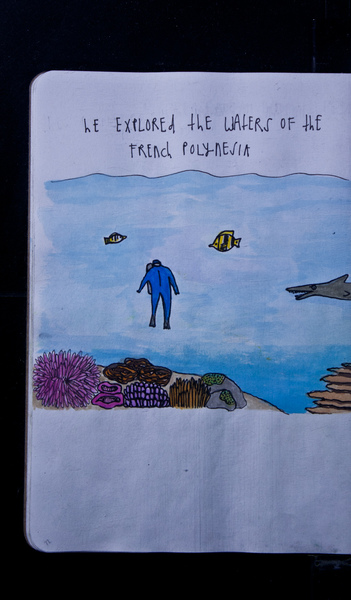 hE EXPLOREd thE WATERS OF thE
FRENch POLYNESIA